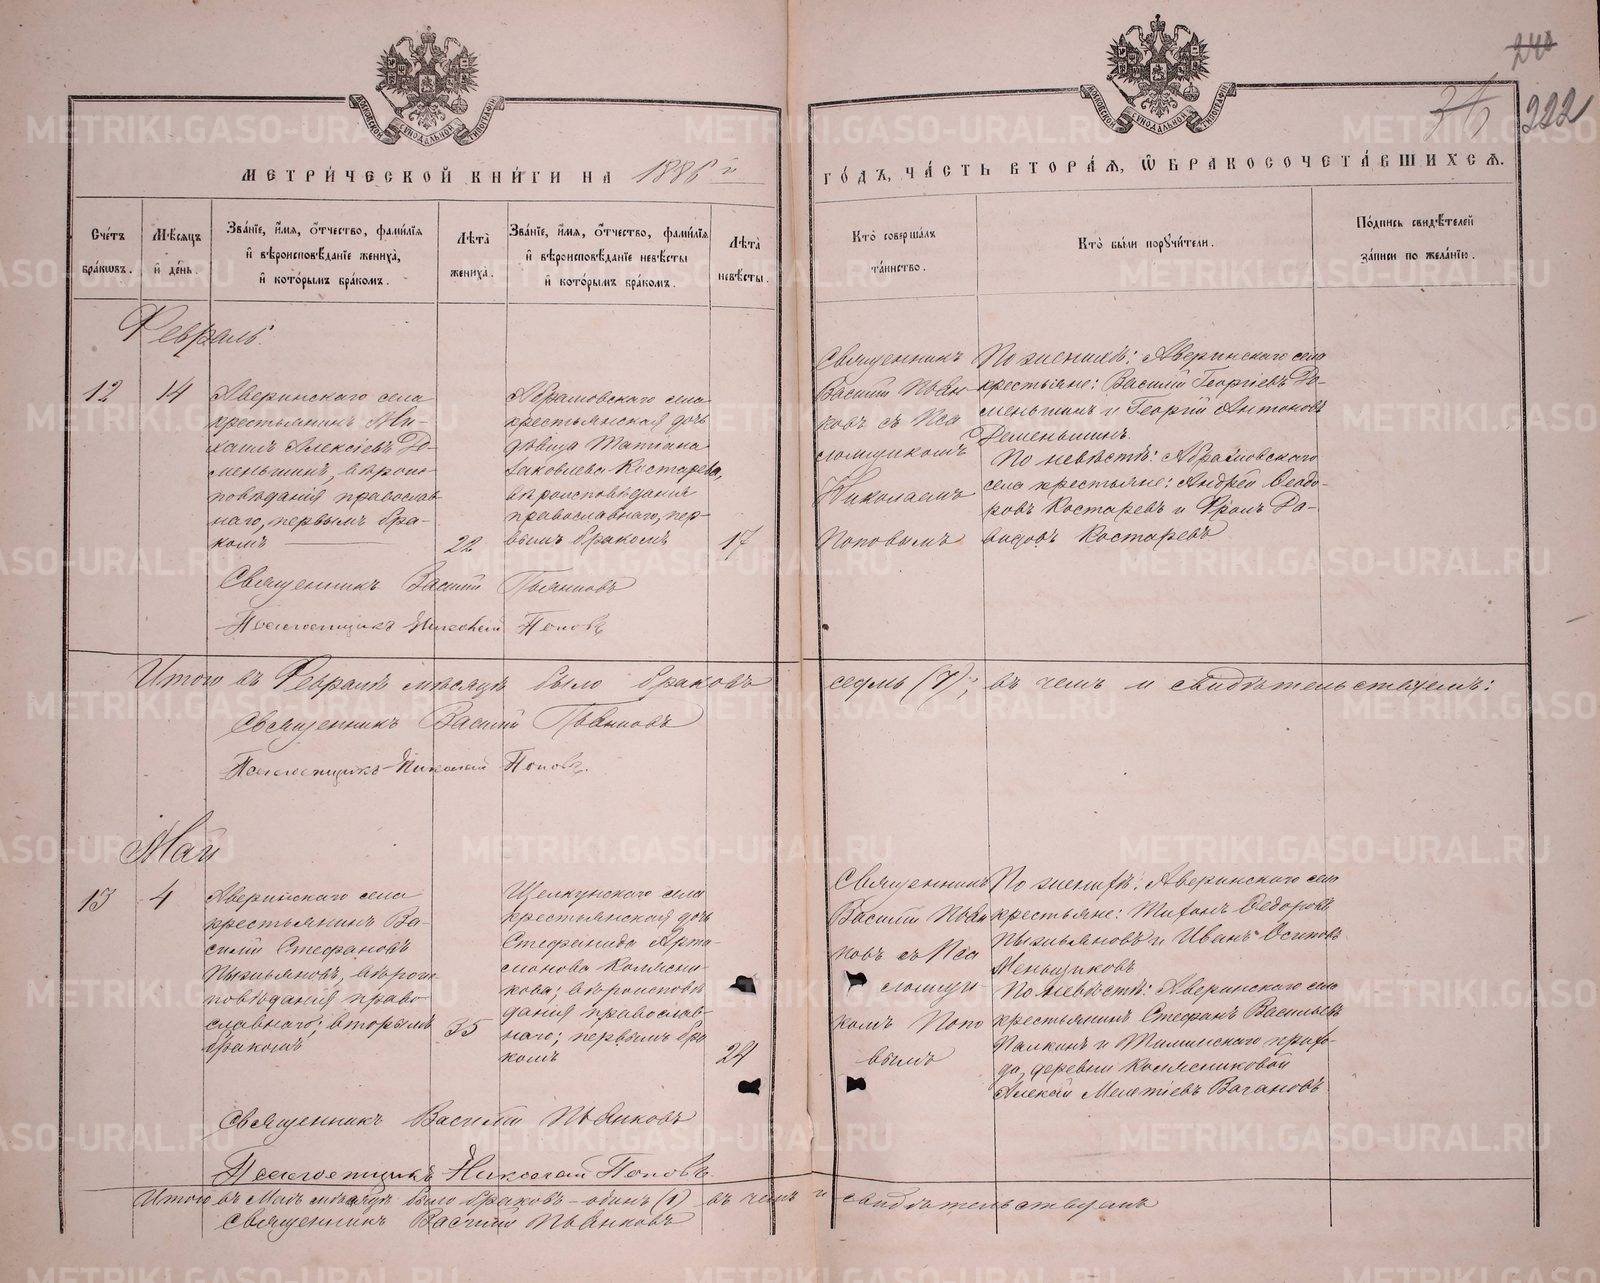 240
222
МЕТРИ́ЧЕСКОЙ КНИ́ГИ НА 1886й
ГО́ДЪ, ЧА́СТЬ ВТОРА́Я, Ѡ БРАКОСОЧЕТА́ВШИХСЯ.
Сче́тъ бра́кѡвъ.
Мѣ́сяцъ и҆ де́нь.
Зва́нїе, и҆́мя, ѻ҆́тчество, фами́лїя и҆ вѣроисповѣ́данїе жениха̀, и҆ кото́рымъ бра́комъ.
Лѣ́та жениха̀.
Зва́нїе, и҆́мя, ѻ҆́тчество, фами́лїя и҆ вѣроисповѣ́данїе невѣ́сты и҆ кото́рымъ бра́комъ.
Лѣ́та невѣ́сты.
Кто̀ соверша́лъ та́инство.
Кто̀ бы́ли порꙋчи́тели.
По́дпись свидѣ́телей за́писи по жела́нїю.
Февраль.
12
14
Аверинскаго села
крестьянинъ Ми-
хаилъ Алексіевъ До-
меньшинъ, вѣроис-
повѣданія православ
наго, первымъ бра-
комъ
22
Абрамовскаго села
крестьянская дочь
дѣвица Татіана
Іаковлева Костарева,
вѣроисповѣданія
православнаго, пер-
вымъ бракомъ
17
Священникъ
Василій Пьян-
ковъ съ Пса
ломщикомъ
Николаемъ
Поповымъ
По женихѣ: Аверинскаго села
крестьяне: Василій Георгіевъ До-
меньшинъ и Георгій Антоновъ
Деменьшинъ.
По невѣстѣ: Абрамовскаго
села крестьяне: Андрей Ѳеодо-
ровъ Костаревъ и Фролъ Да-
видовъ Костаревъ
Священникъ Василій Пьянковъ
Псаломщикъ Николай Поповъ
Итого въ Февралѣ мѣсяцѣ было браковъ седмь (7); въ чемъ и свидѣтельствуемъ:
Священникъ Василій Пьянковъ
Псаломщикъ Николай Поповъ.
Май
13
4
Аверинскаго села
крестьянинъ Ва-
силій Стефановъ
Пызьяновъ, вѣроис
повѣданія право-
славнаго; вторымъ
бракомъ
35
Щелкунскаго села
крестьянская дочь
Стефанида Арта-
монова Колясни-
кова; вѣроисповѣ
данія православ-
наго; первымъ бра
комъ
24
Священникъ
Василій Пьян
ковъ съ Пса
ломщи-
комъ Попо
вымъ
По женихѣ: Аверинскаго села
крестьяне: Тихонъ Ѳедоровъ
Пызьяновъ и Иванъ Осиповъ
Меньщиковъ
По невѣстѣ: Аверинскаго села
крестьянинъ Стефанъ Васильевъ
Палкинъ и прихо-
да, деревни Колясниковой
Алексій Мелетіевъ Вагановъ
Священникъ Василій Пьянковъ
Псаломщикъ Николай Поповъ
Итого въ Маѣ мѣсяцѣ было браковъ - одинъ (1) въ чемъ и свидѣтельствуемъ
Священникъ Василій Пьянковъ
METRIKI.GASO-URAL.RU